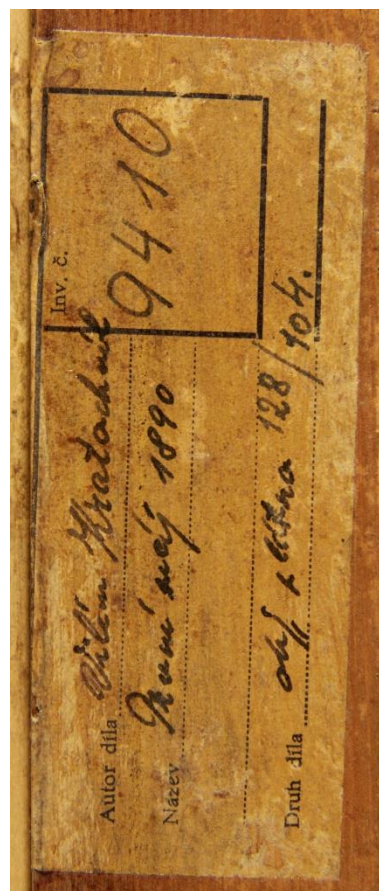 Inv. č. 9410
Autor díla Vilém Kratochvíl
Název První máj 1890
Druh díla olej 128/104.